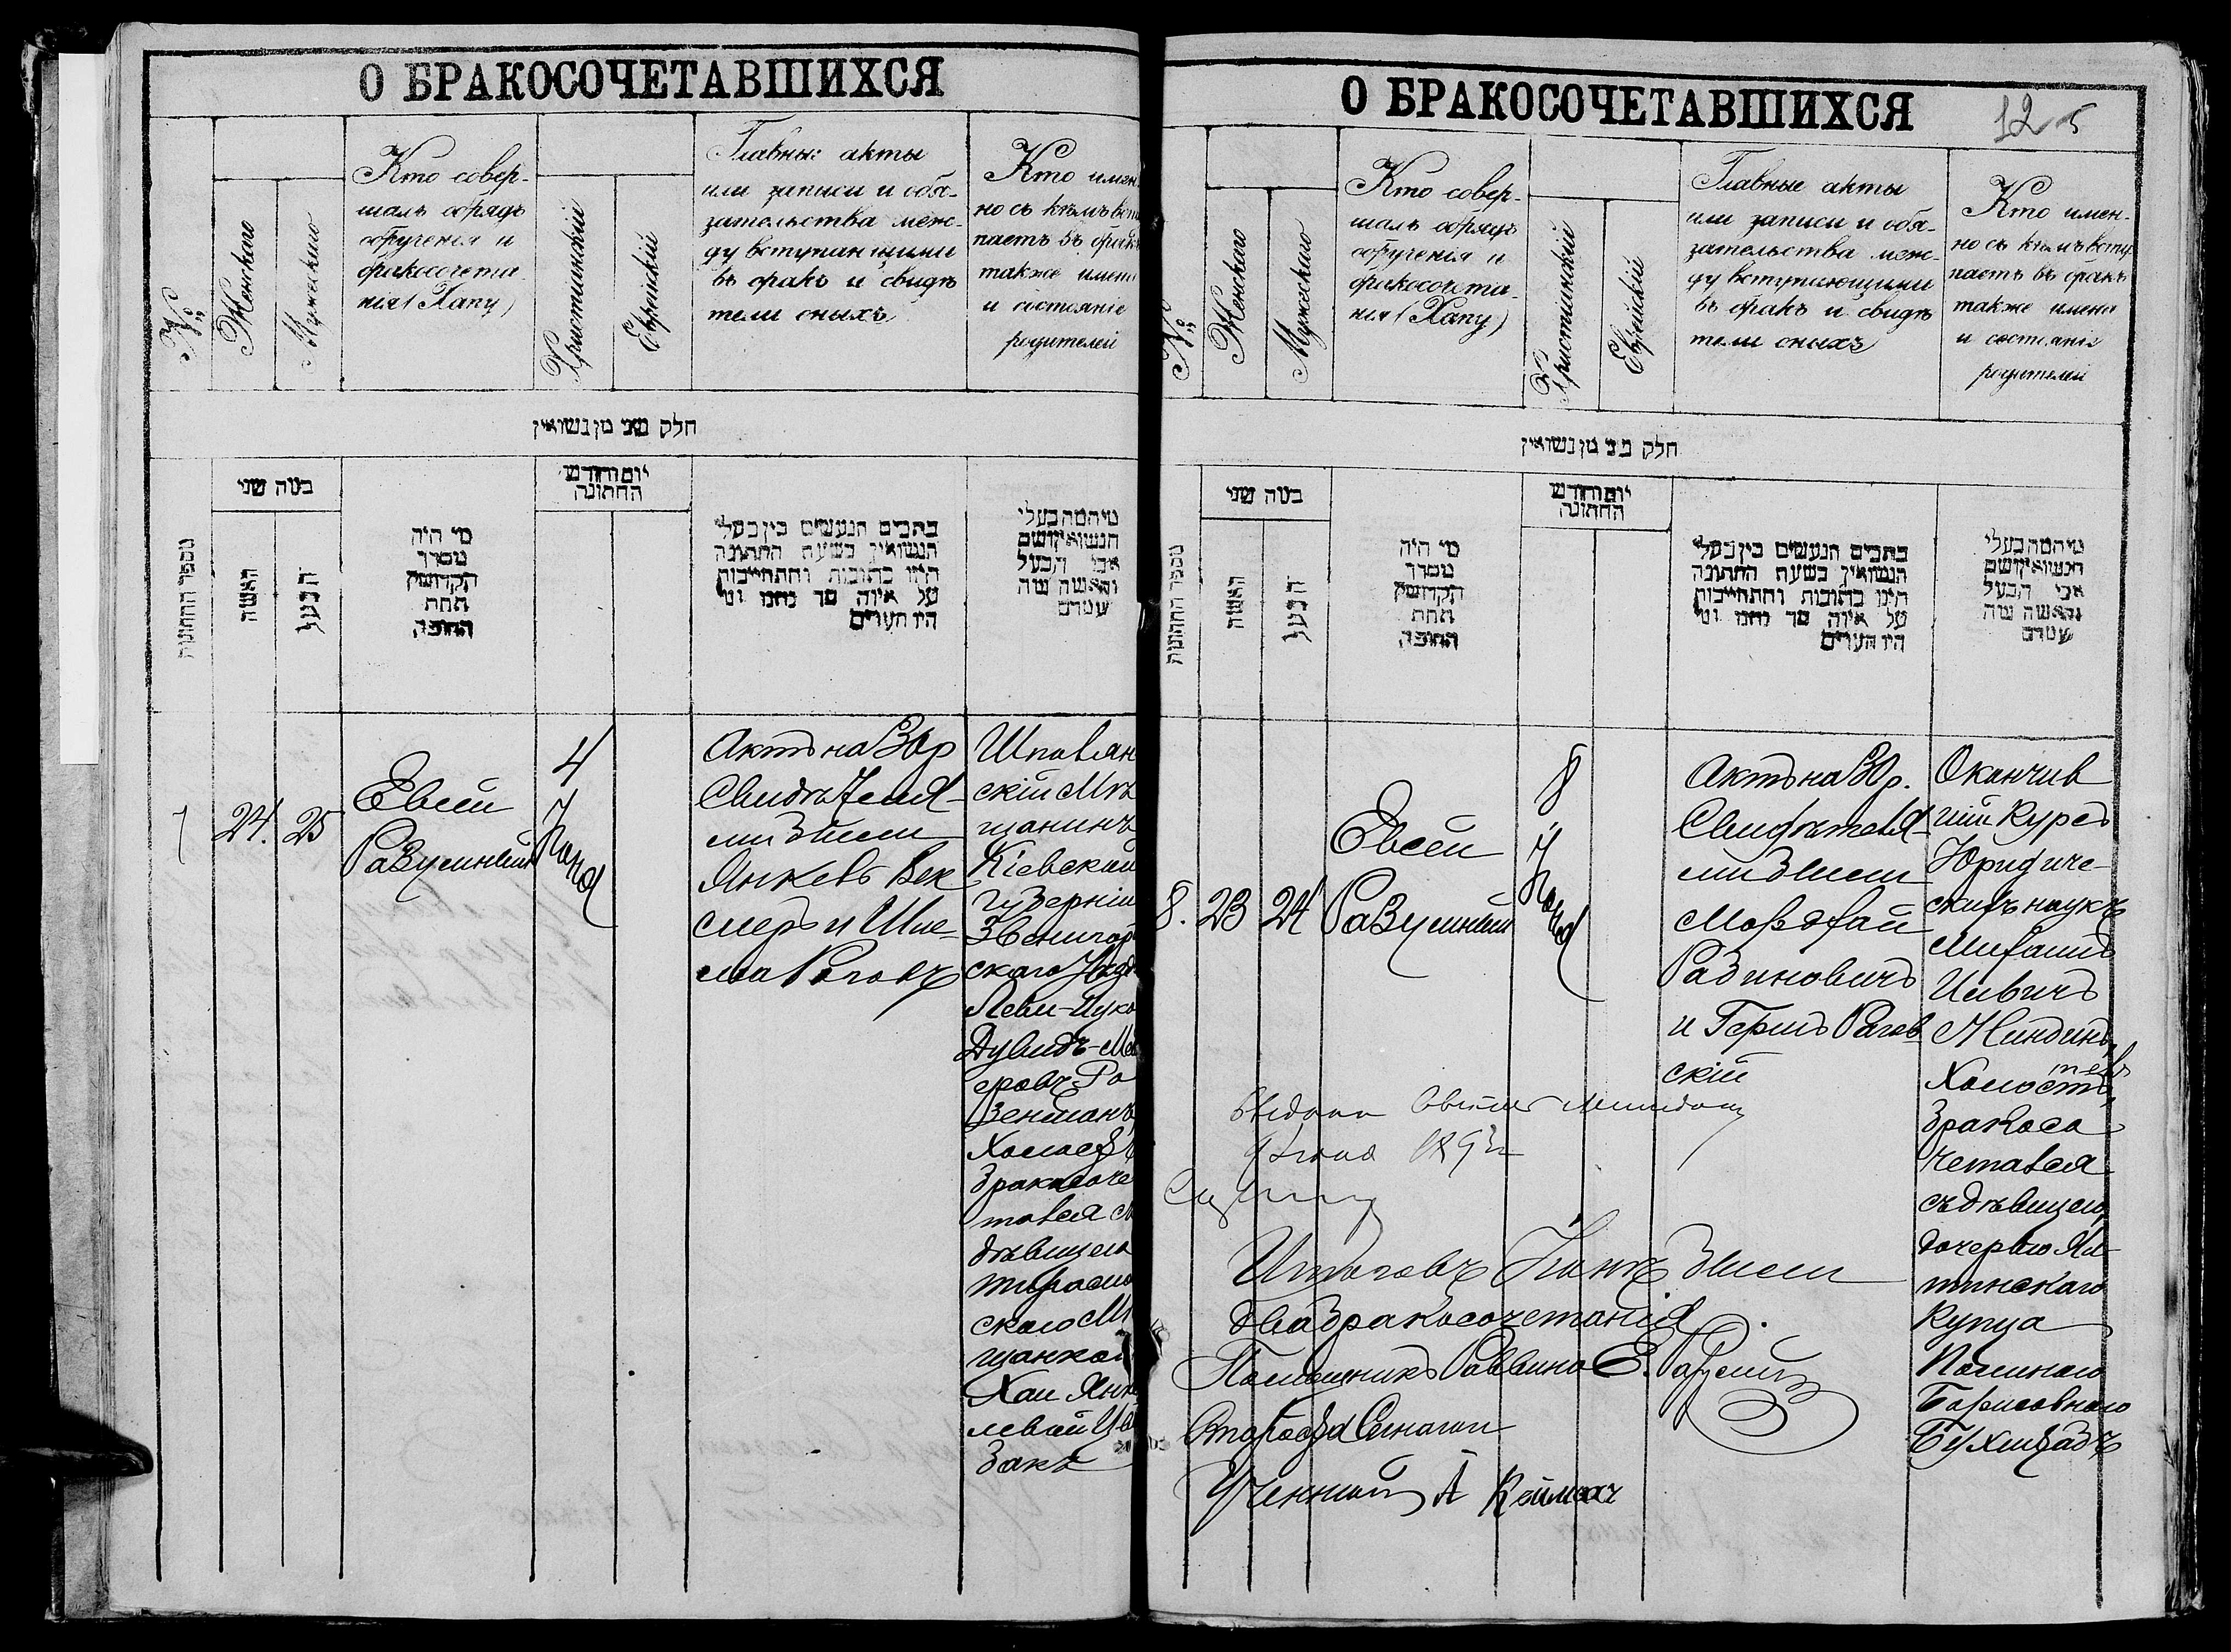 О БРАКОСОЧЕТАВШИХСЯ
№
Женскаго
Мужескаго
Кто совер-
шалъ обрядъ
обрученія и
бракосочета-
нія (Хапу)
Христіанскій
Еврейскій
Главные акты
или записи и обя-
зательства меж-
ду вступающими
въ бракъ и свидѣ
тели оныхъ
Кто имен
но съ кѣмъ всту
паетъ въ бракъ
также имена
и состояніе
родителей
חלק שני מן נשואין
מספר החתונות
כמה שני
האשה
הבעל
מי היה
מסדר
הקדושין
תחת
החופה
יום וחודש
החתונה
כתבים הנעשים בין בעלי
הנשואין בשעת החתונה
היינו כתובות והתחייבות
על איזה סך נתנו ומי
היו העדים
מי המה בעלי
הנשואין ושם
אבי הבעל
והאשה ומה
עמדם
7
24.
25
Евсей
Разумный
4
Іюня
Актъ на 30 р
Свидѣтеля-
ми были
Янкевъ Век
слеръ и Шле-
ма Роговъ
Шполян
скій Мѣ
щанинъ
Кіевской
губерніи
Звенигород
скаго Уѣзд
Леви-Ицко
Дувидъ-Ме
еровъ Ро
зенманъ,
Холостъ
бракосоче
тался с
дѣвицею
Тирасполь
скаго Мѣ
щанкой
Хаи Янке
левой Цы
бакъ
О БРАКОСОЧЕТАВШИХСЯ
125
№
Женскаго
Мужескаго
Кто совер-
шалъ обрядъ
обрученія и
бракосочета-
нія (Хапу)
Христіанскій
Еврейскій
Главные акты
или записи и обя-
зательства меж-
ду вступающими
въ бракъ и свидѣ
тели оныхъ
Кто имен-
но съ кѣмъ всту
паетъ въ бракъ
также имена
и состояніе
родителей
חלק שני מן נשואין
מספר החתונות
כמה שני
האשה
הבעל
מי היה
מסדר
הקדושין
תחת
החופה
יום וחודש
החתונה
כתבים הנעשים בין בעלי
הנשואין בשעת החתונה
היינו כתובות והתחייבות
על איזה סך נתנו ומי
היו העדים
מי המה בעלי
הנשואין ושם
אבי הבעל
והאשה ומה
עמדם
8.
23
24
Евсей
Разумный
8
Іюня
Актъ на 30 р.
Свидѣтеля-
ми были
Мордхай
Рабиновичъ
и Гершъ Рогов
скій
Окончив
шій курсъ
Юридиче-
скихъ наукъ
Михаилъ
Ильичъ
Миндинъ,
Холостъ,
бракосо
четался
съ дѣвицею,
дочерью Ял-
тинскаго
Купца
Полиною
Борисовною
Бухштабъ
Итоговъ Іюнѣ были
два бракосочетанія.
Помощникъ Раввина Е. Разумный
Староста Синагоги
Ученный А Кейлмах